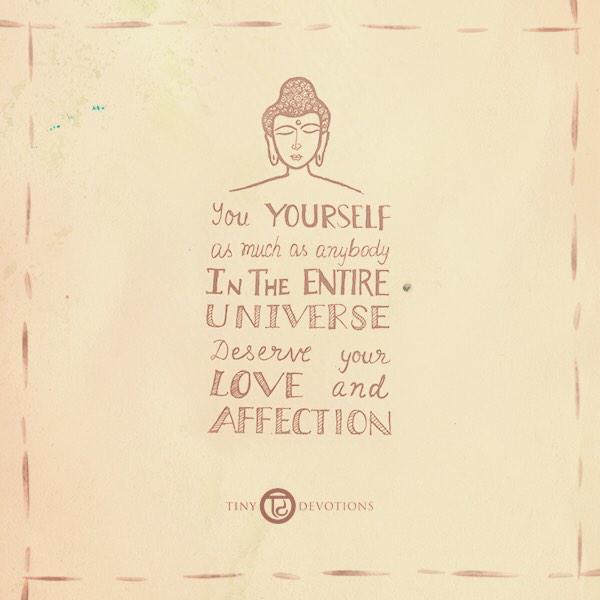 You YOURSELF
as much as anybody
IN THE ENTIRE
UNIVERSE
Deserve your
LOVE and
AFFECTION
TINY DEVOTIONS